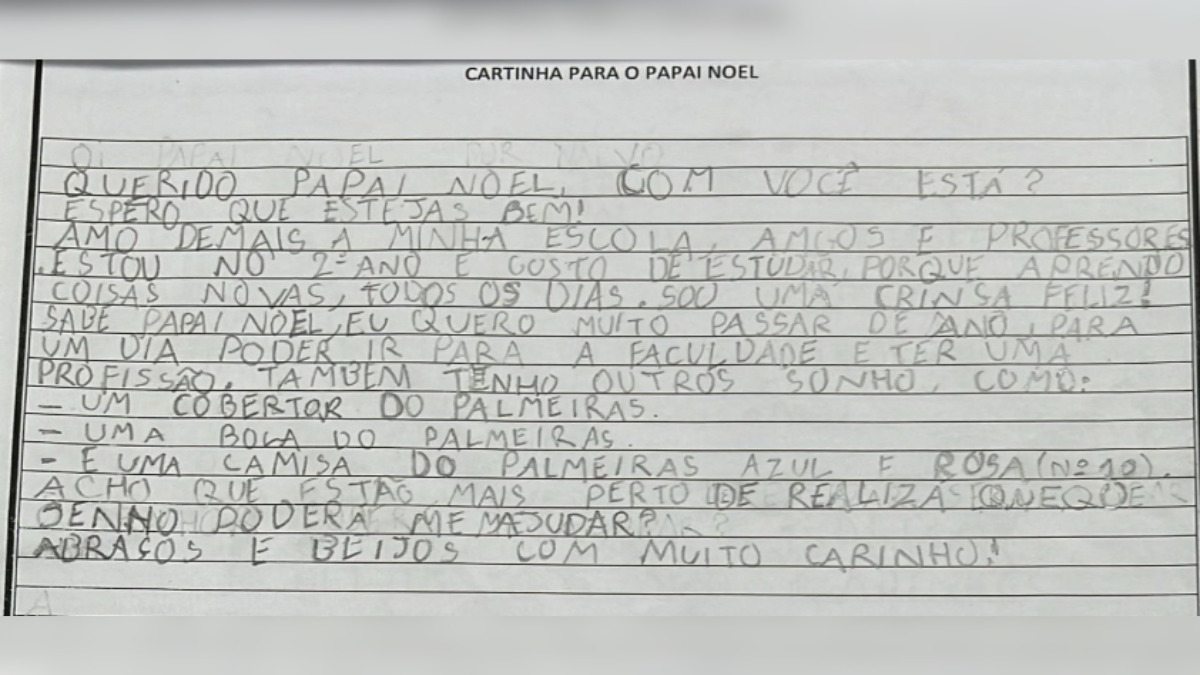 CARTINHA PARA O PAPAI NOEL
OI PAPAI NOEL POR
QUERIDO PAPAI NOEL, COM VOCÊ ESTÁ?
ESPERO QUE ESTEJAS BEM!
AMO DEMAIS A MINHA ESCOLA, AMIGOS E PROFESSORES
.ESTOU NO 2º ANO E GOSTO DE ESTUDAR, PORQUE APRENDO
COISAS NOVAS, TODOS OS DIAS. SOU UMA CRINSA FELIZ!
SABE PAPAI NOEL, EU QUERO MUITO PASSAR DE ANO, PARA
UM DIA PODER IR PARA A FACULDADE E TER UMA
PROFISSÃO. TAMBEM TENHO OUTROS SONHO, COMO:
- UM COBERTOR DO PALMEIRAS.
- UMA BOLA DO PALMEIRAS.
- E UMA CAMISA DO PALMEIRAS AZUL E ROSA (Nº 10).
ACHO QUE ESTÃO MAIS PERTO DE REALIZA
PODERA ME AJUDAR?
ABRASOS E BEIJOS COM MUITO CARINHO!
A